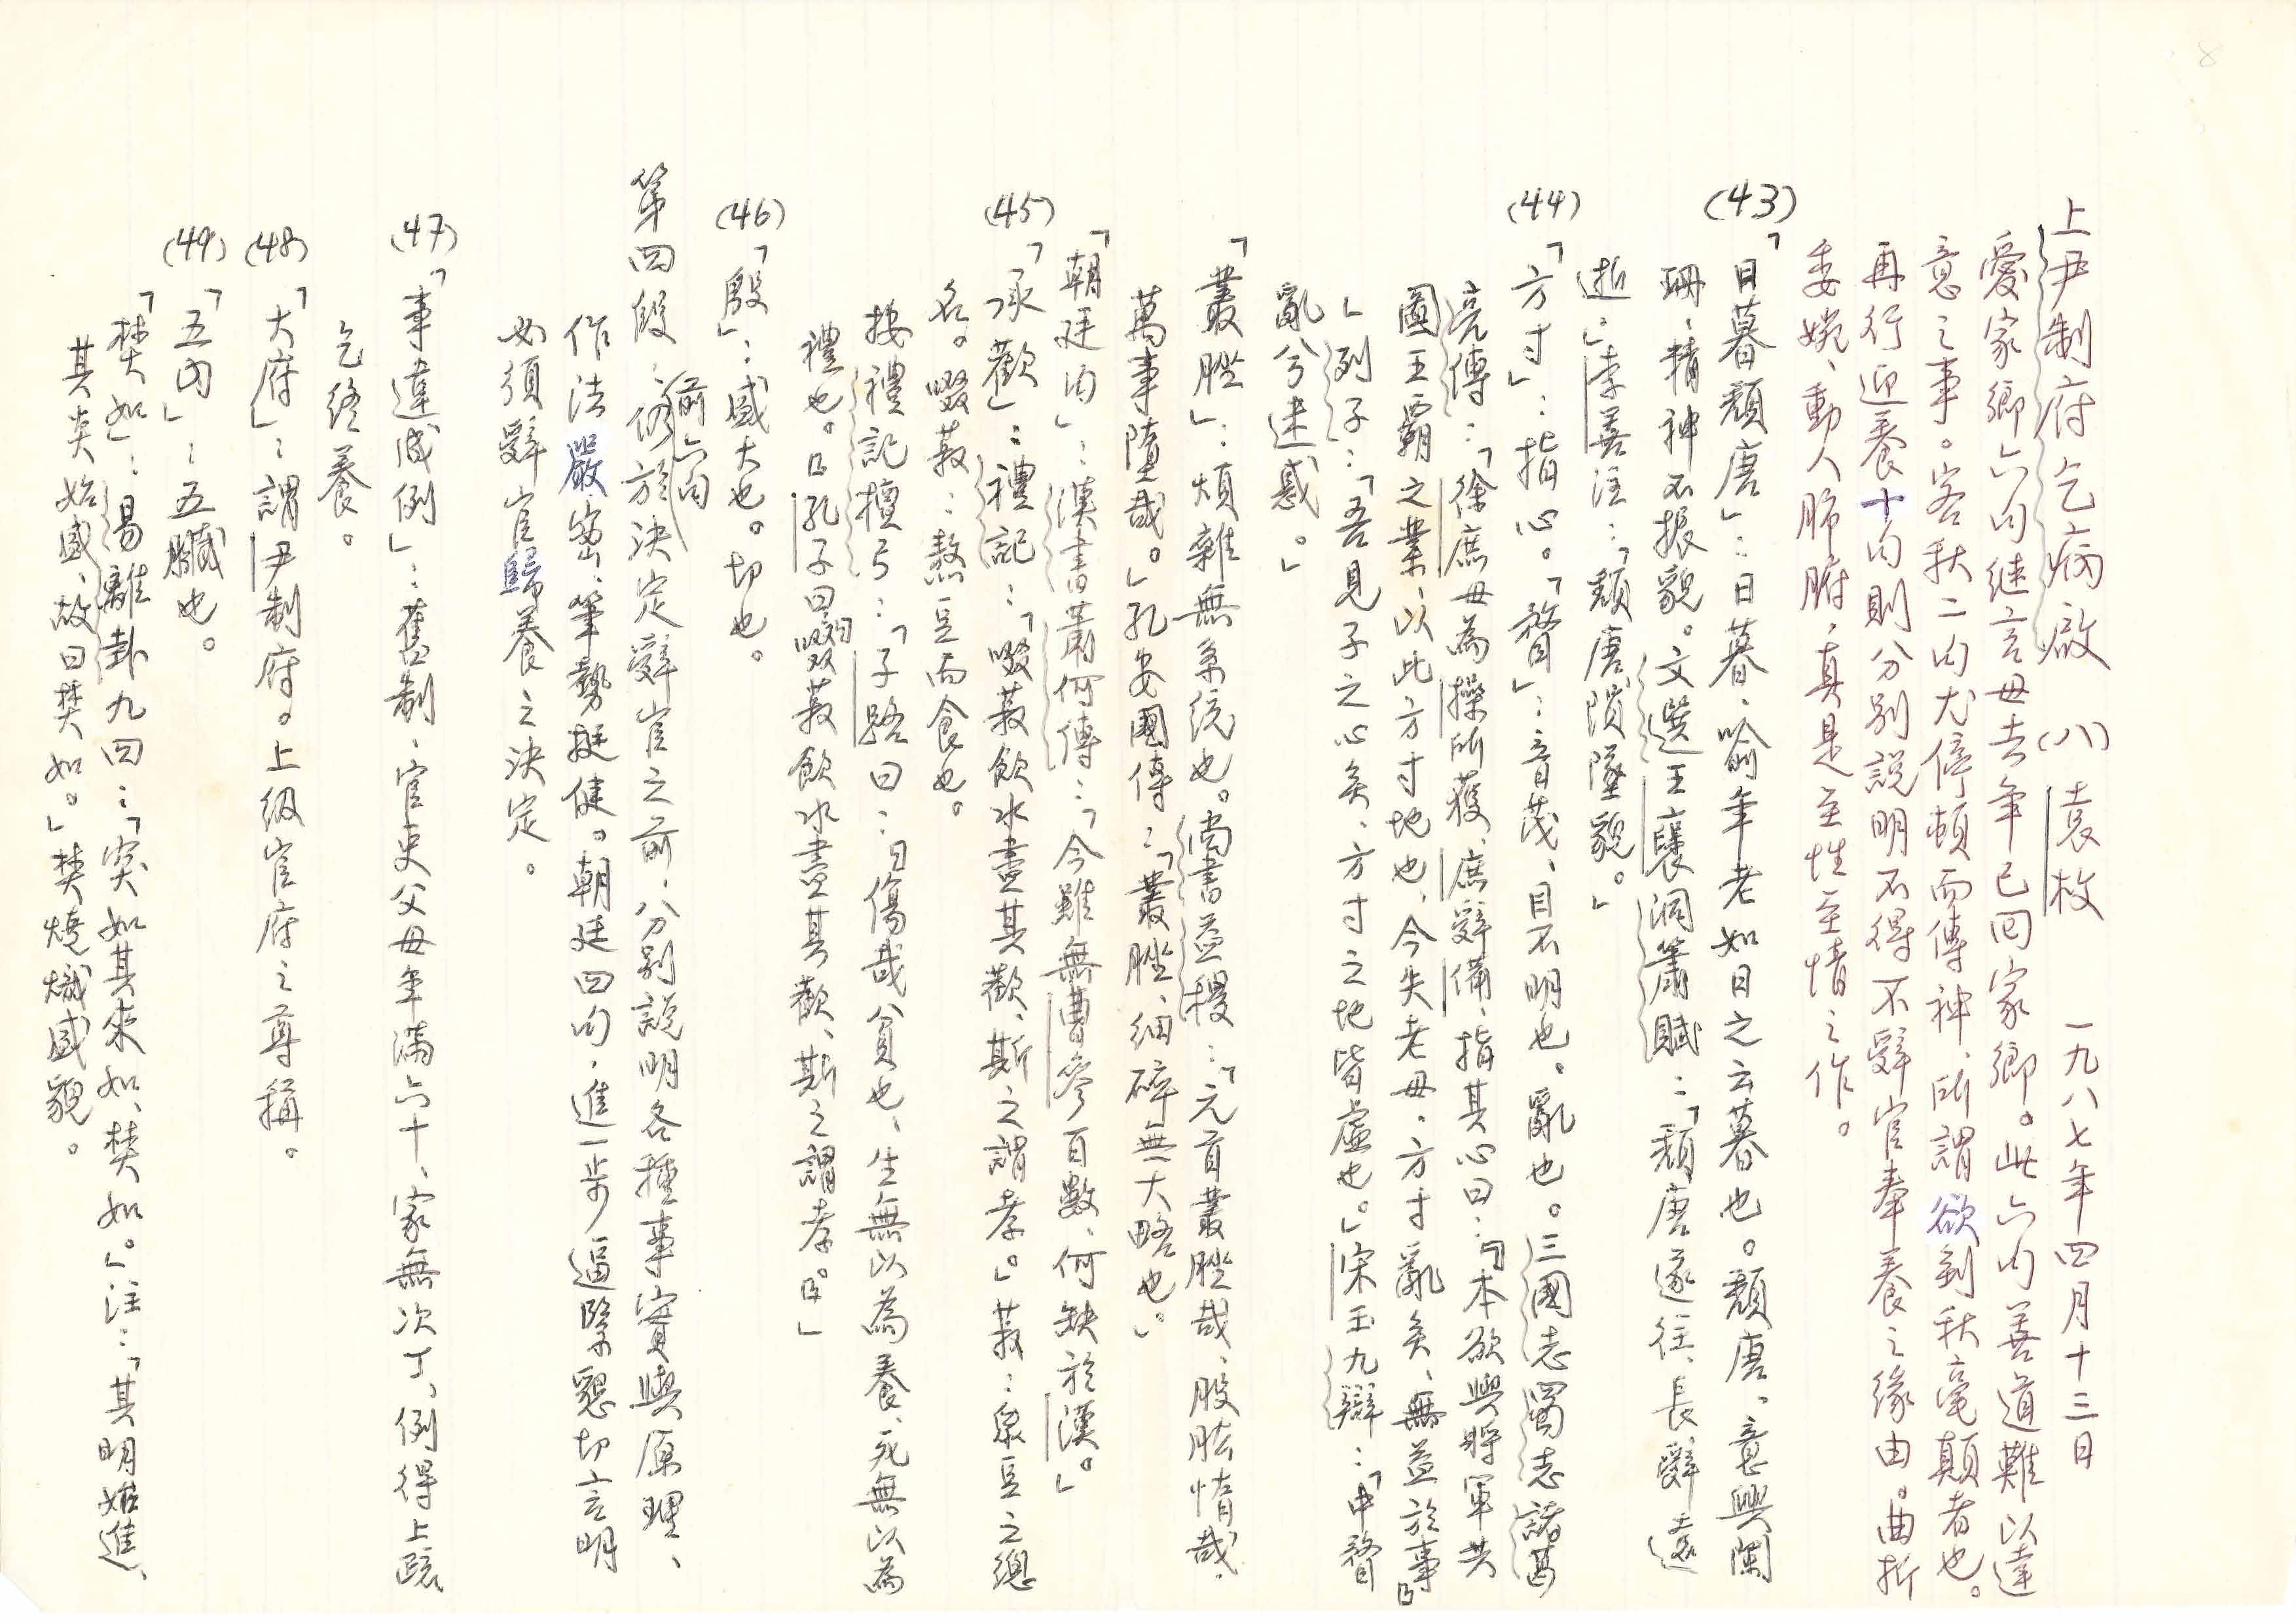 8
上尹制府乞病啟　(八)　袁枚　一九八七年四月十三日
愛家鄉六句繼言母去年已回家鄉。此六句善道難以達
意之事。客秋二句尤停頓而傳神、所謂欲到秋毫顛者也。
再行迎養十句則分別說明不得不辭官奉養之緣由。曲折
委婉、動人肺腑、真是至性至情之作。
(43)「日暮頹唐」：日暮、喻年老如日之云暮也。頹唐、意興闌
珊、精神不振貌。文選王襃洞簫賦：「頹唐遂往、長辭遠
逝。」李善注：「頹唐隕墜貌。」
(44)「方寸」：指心。「瞀」：音茂、目不明也。亂也。三國志蜀志諸葛
亮傳：「徐庶母為操所獲、庶辭備、指其心曰：『本欲與將軍共
圖王霸之業、以此方寸地也、今失老母、方寸亂矣、無益於事』
」列子：「吾見子之心矣、方寸之地皆虛也。」宋玉九辯：「中瞀
亂兮迷惑。」
「叢脞」：煩雜無系統也。尚書益稷：「元首叢脞哉、股肱惰哉、
萬事墮哉。」孔安國傳：「叢脞、細碎無大略也。」
「朝廷內」：漢書蕭何傳：「今雖無曹參百數、何缺於漢。」
(45)「承歡」：禮記：「啜菽飲水盡其歡、斯之謂孝。」菽：泉豆之總
名。啜菽：熬豆而食也。
按禮記檀弓：「子路曰：『傷哉貧也、生無以為養、死無以為
禮也。』孔子曰：『啜菽飲水盡其歡、斯之謂孝。』」
(46)「殷」：盛大也。切也。
第四段：前六句修於決定辭官之前、分別說明各種事實與原理、
作法嚴密、筆勢挺健。朝廷四句、進一步逼緊懇切言明
必須辭官歸養之決定。
(47)「事違成例」：舊制、官吏父母年滿六十、家無次丁、例得上疏
乞終養。
(48)「大府」：謂尹制府。上級官府之尊稱。
(49)「五內」：五臟也。
「焚如」：易離卦九四：「突如其來如、焚如。」注：「其明始進、
其炎始盛、故曰焚如。」焚燒熾盛貌。